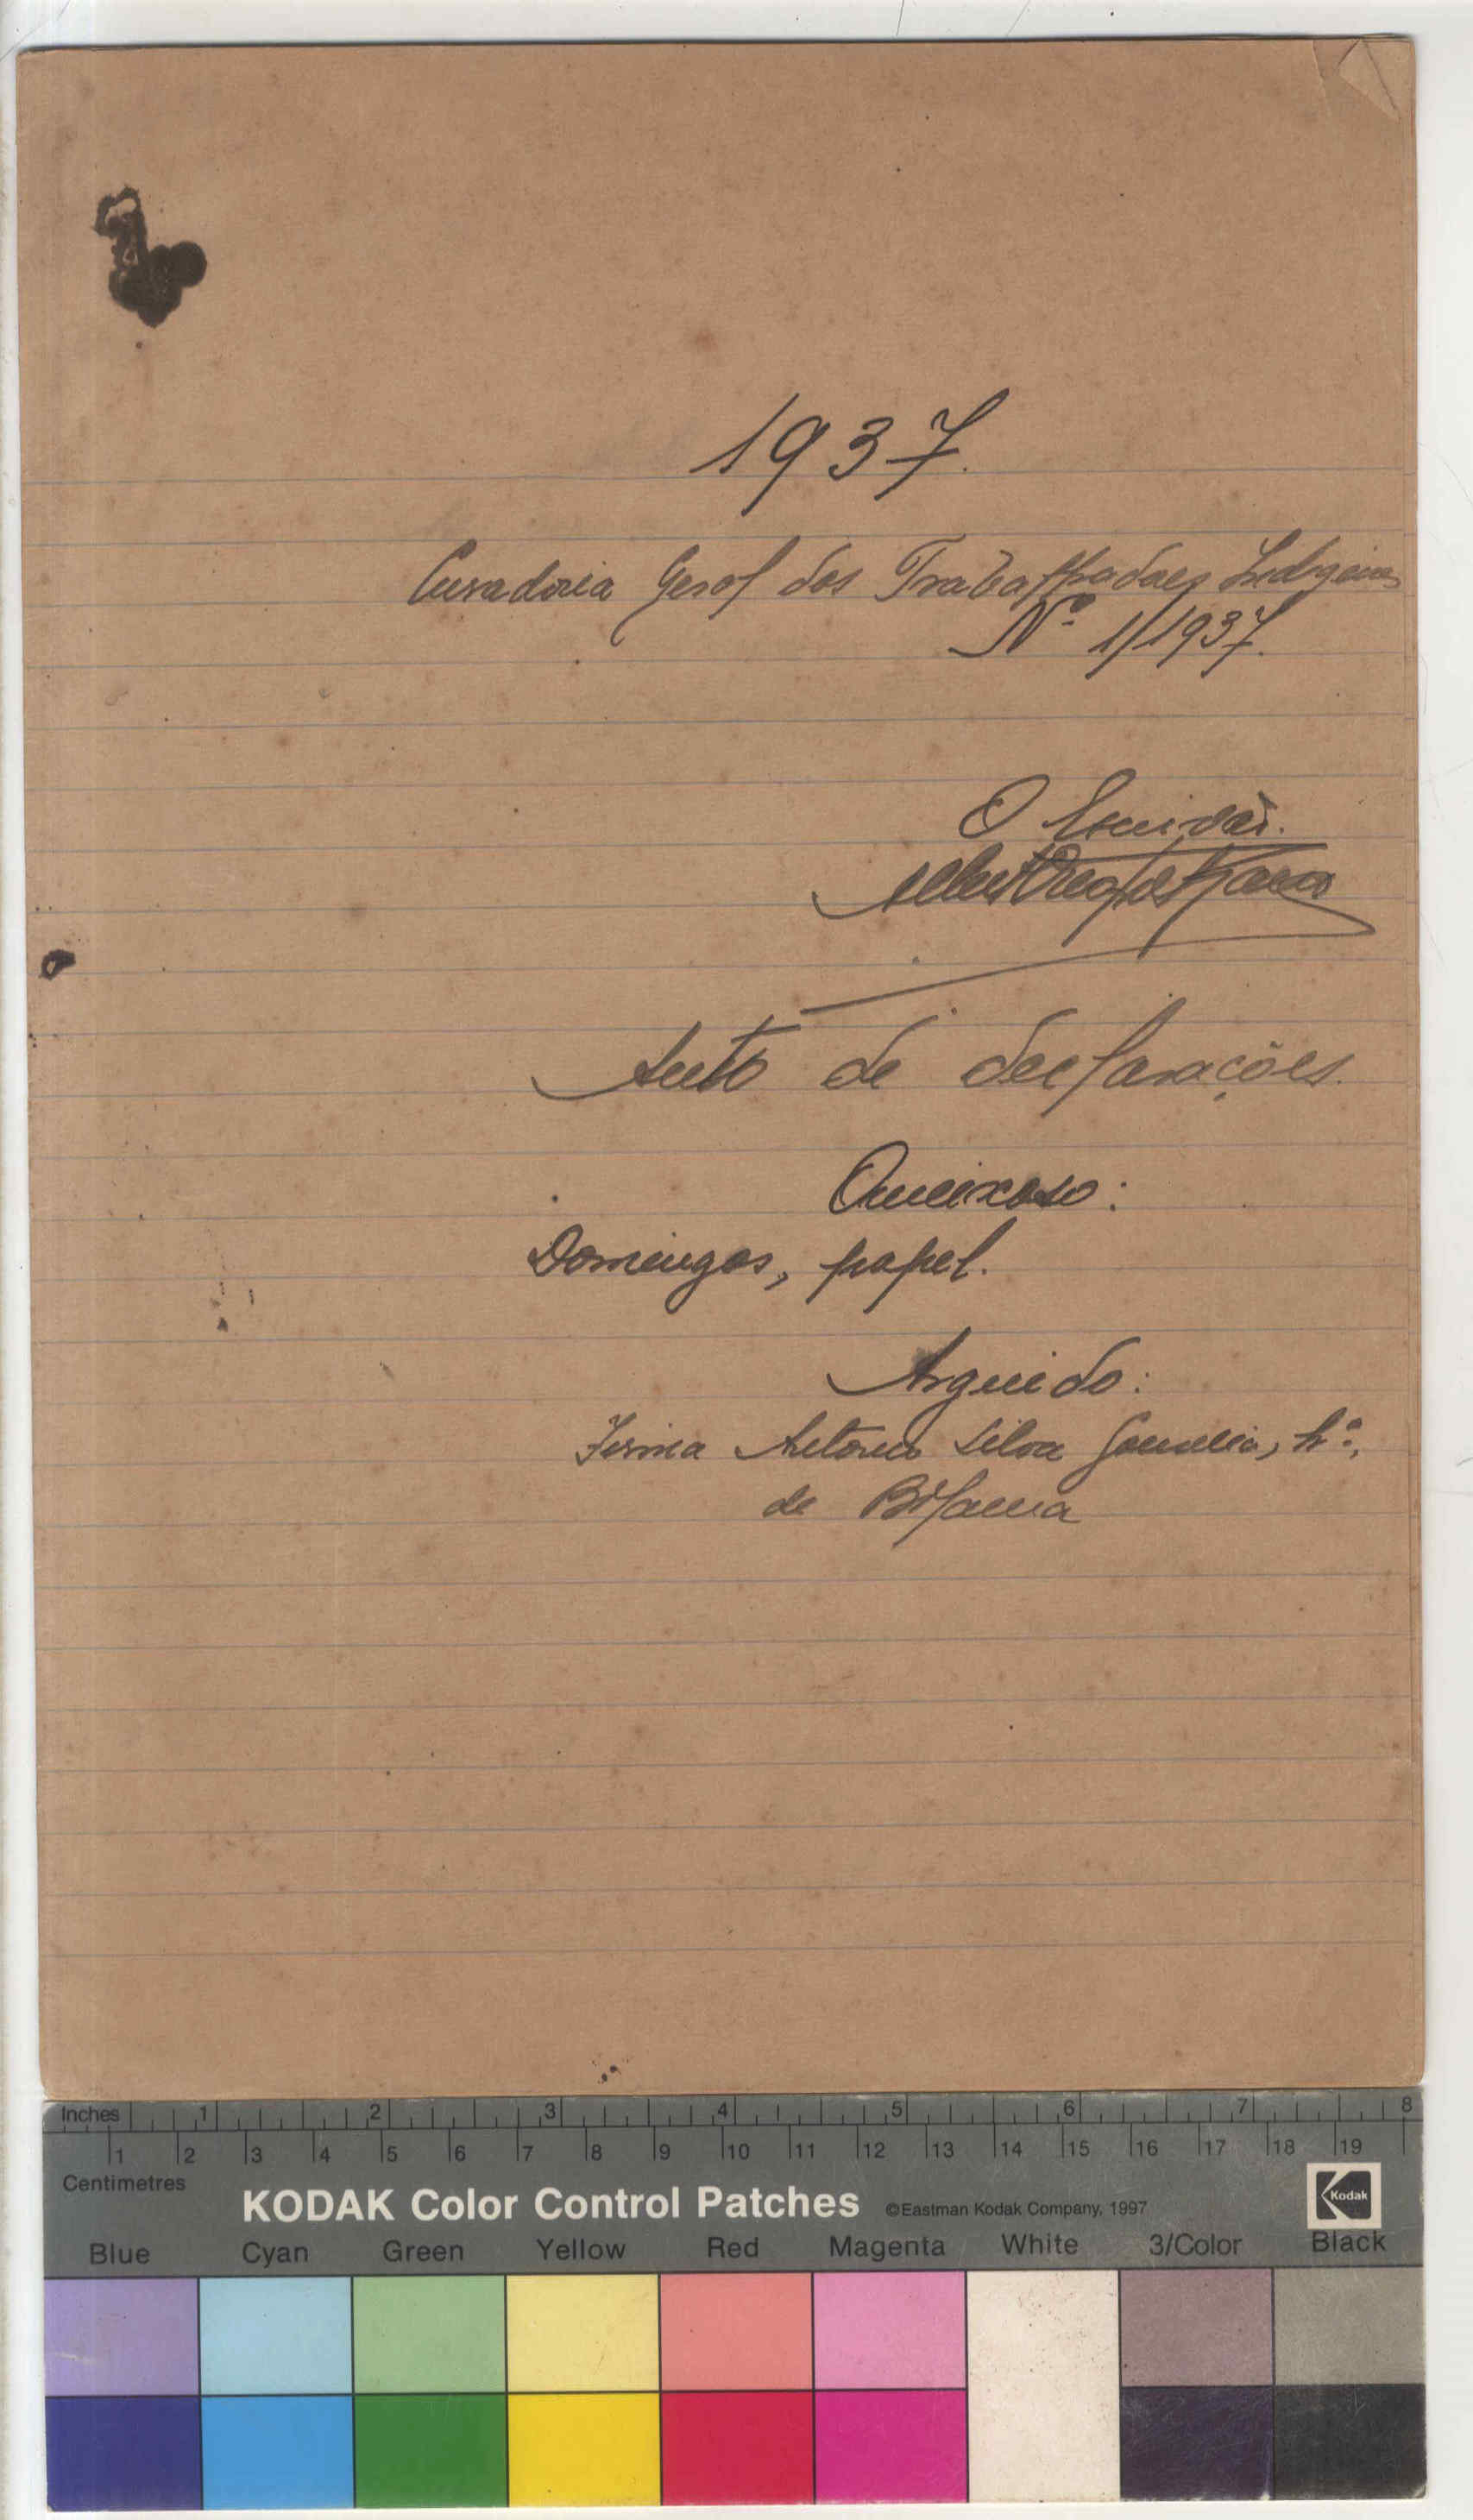 1937.
Curadoria Geral dos Trabalhadores Indígenas
Nº 1/1937.
O Escrivão.
Auto de declarações.
Queixoso:
Domingos, papel.
Arguido:
Firma António Silva Gouveia,
de Bissau
Inches 1 2 3 4 5 6 7 8
1 2 3 4 5 6 7 8 9 10 11 12 13 14 15 16 17 18 19
Centimetres
KODAK Color Control Patches ©Eastman Kodak Company, 1997 Kodak
Blue Cyan Green Yellow Red Magenta White 3/Color Black